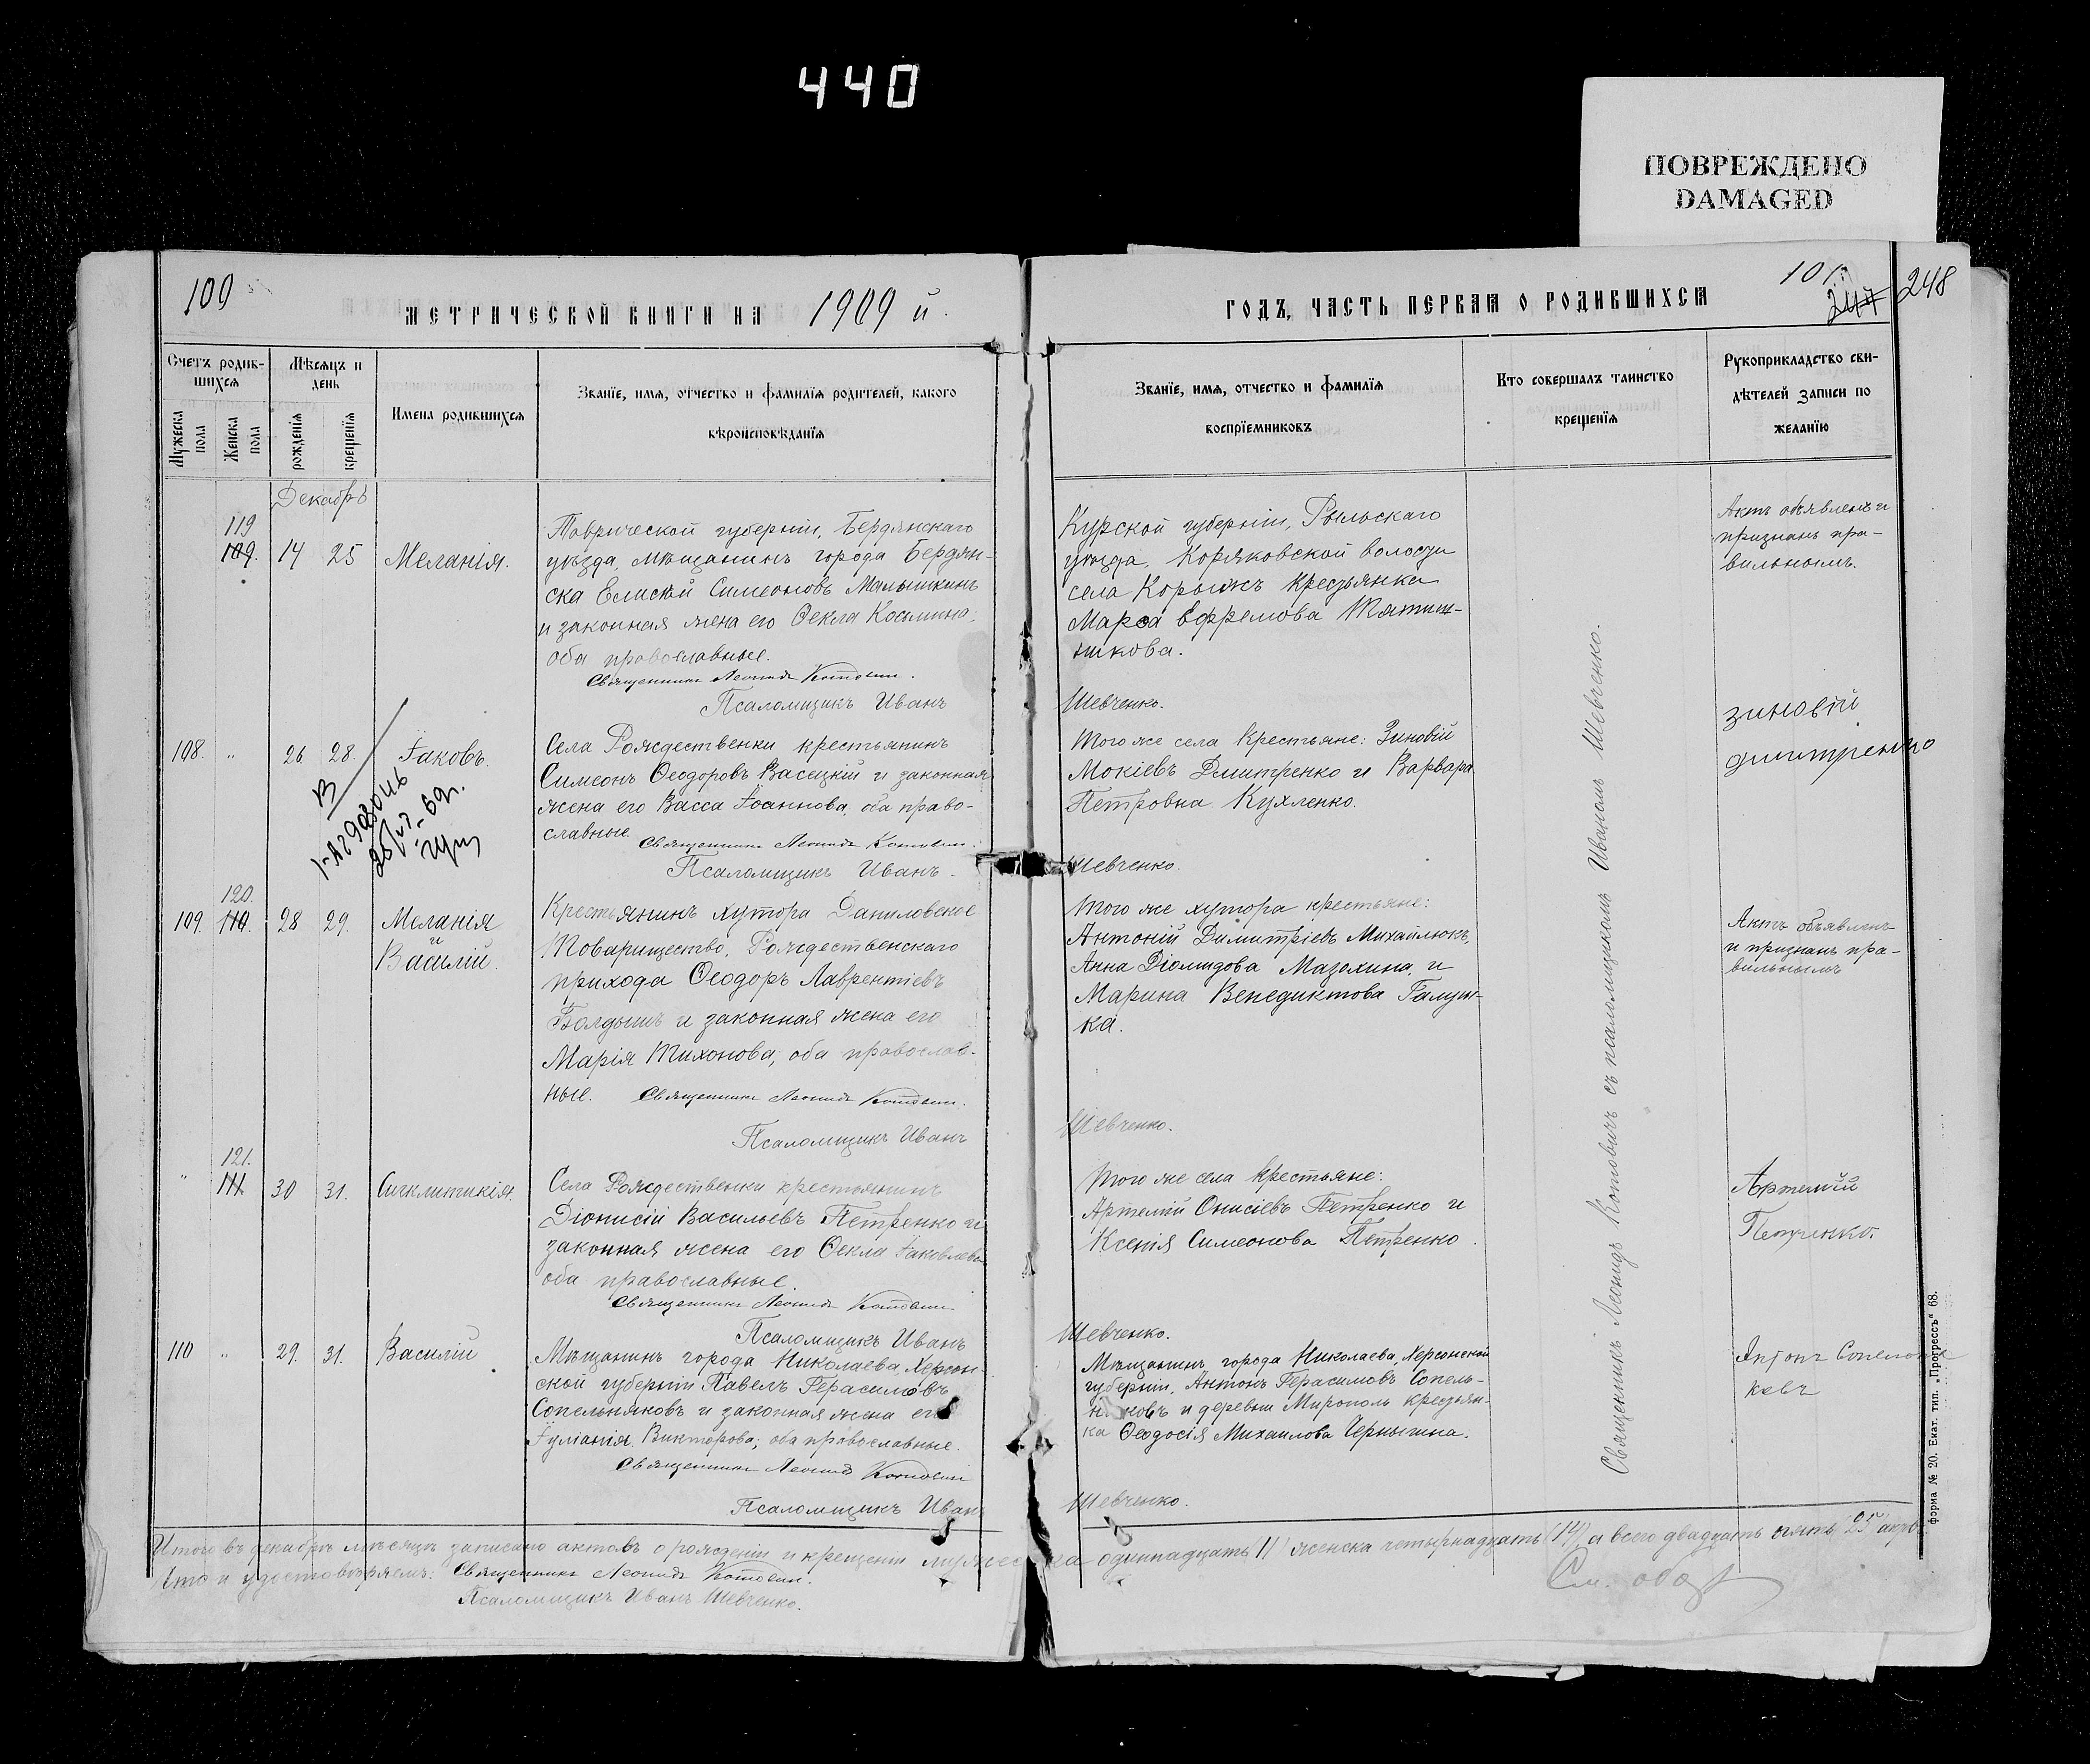 440
ПОВРЕЖДЕНО
DAMAGED
109
МЕТРИЧЕСКОЙ КНИГИ НА 1909 й.
Счетъ родив-
шихся
Мѣсяцъ и
день
Мужеска
пола
Женска
пола
рожденія
крещенія
Имена родившихся
Званїе, имя, отчество и фамилїя родителей, какого
вѣроисповѣданїя
Декабрь
119
109. 14 25 Меланія.
Таврической губерніи, Бердянскаго
уѣзда, мѣщанинъ города Бердян-
ска Елисѣй Симеоновъ Малышкинъ
и законная жена его Ѳекла Косьмина;
оба православные.
Священникъ Леонидъ Котович.
Псаломщикъ Иванъ
108. " 26 28. Іаковъ.
Села Рождественки крестьянинъ
Симеонъ Ѳеодоровъ Васецкій и законная
жена его Васса Іоаннова, оба право-
славные.
Священникъ Леонидъ Котович.
Псаломщикъ Иванъ
120.
109. 110. 28 29. Меланія
и
Василій.
Крестьянинъ хутора Даниловское
Товарищество, Рождественскаго
прихода Ѳеодоръ Лаврентіевъ
Болдышъ и законная жена его
Марія Тихонова; оба православ-
ные. Священникъ Леонидъ Котович.
Псаломщикъ Иванъ
121.
" 111. 30 31. Сигклитикія.
Села Рождественки крестьянинъ
Діонисій Васильевъ Петренко и
законная жена его Ѳекла Іаковлева
оба православные.
Священникъ Леонидъ Котович.
Псаломщикъ Иванъ
110 " 29. 31. Василій
Мѣщанинъ города Николаева, Херсон-
ской губерніи Павелъ Герасимовъ
Сопельняковъ и законная жена его
Іуліанія Викторова; оба православные.
Священникъ Леонидъ Котович
Псаломщикъ Иванъ
101.
247 248
ГОДЪ, ЧАСТЬ ПЕРВАЯ О РОДИВШИХСЯ
Званїе, имя, отчество и фамилїя
воспрїемниковъ
Кто совершалъ таинство
крещенїя
Рукоприкладство сви-
дѣтелей записи по
желанїю
Курской губерніи, Рыльскаго
уѣзда, Коряковской волости
села Корыжъ крестьянка
Марѳа Ефремова
Шевченко.
Актъ объявленъ и
признанъ пра-
вильнымъ.
Того же села крестьяне: Зиновій
Мокіевъ Дмитренко и Варвара
Петровна Кухленко.
Шевченко.
Зиновій
Димтренко
Того же хутора крестьяне:
Антоній Димитріевъ Михайлюкъ,
Анна Діомидова Мазохина, и
Марина Венедиктова Галуш-
ка.
Шевченко.
Актъ объявленъ
и признанъ пра-
вильнымъ
Того же села крестьяне:
Артемій Онисіевъ Петренко и
Ксенія Симеонова Петренко.
Шевченко.
Артемій
Петренко.
Мѣщанинъ города Николаева, Херсонской
губерніи, Антонъ Герасимовъ Сопель-
няковъ и деревни Мирополь крестьян-
ка Ѳеодосія Михаилова Чернысина.
Шевченко.
Антонъ
ковъ
Священникъ Леонидъ Котовичъ съ псаломщикомъ Иваномъ Шевченко.
Итого въ декабрѣ мѣсяцѣ записано актовъ о рожденіи и крещеніи мужеска одиннадцать (11) женска четырнадцать (14), а всего двадцать пять 25 актовъ
Что и удостовѣряемъ: Священникъ Леонидъ Котович.
Псаломщикъ Иванъ Шевченко.
См. обор
Форма № 20. Екат. тип. „Прогрессъ" 68.